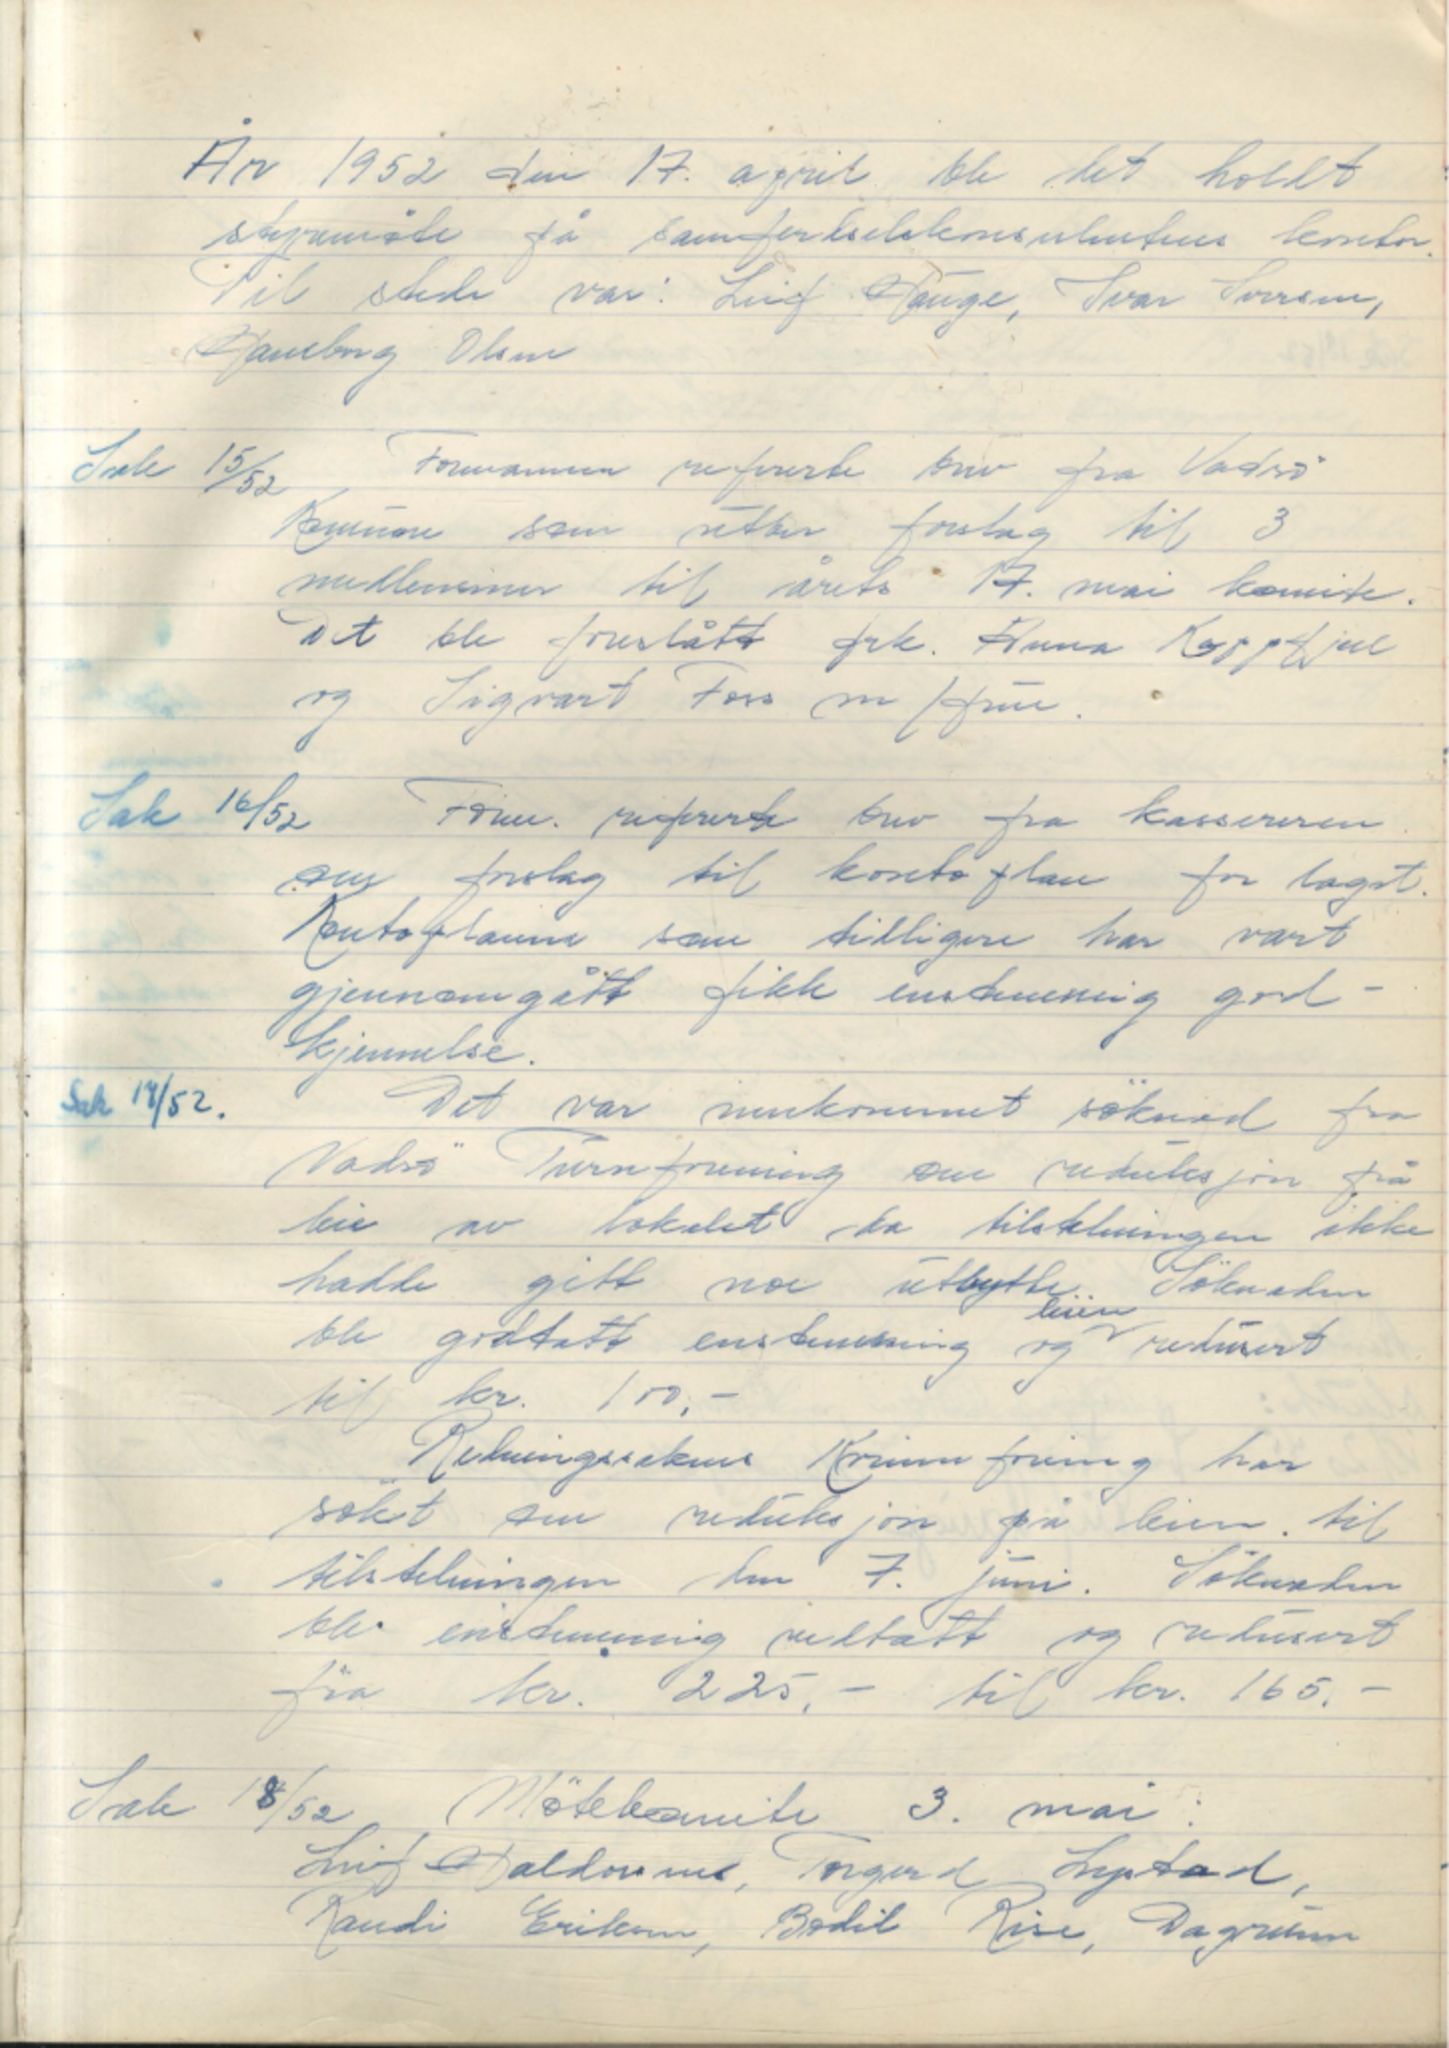 År 1952 den 17. april ble det holdt
styremöte på samferdselskonsulentens kontor.
Til stede var: Leif Hauge, Ivar Iversen,
Hansborg Olsen
Sak 15/52 Formannen refererte brev fra Vadsö
Kommune som utber forslag til 3
medlemmer til årets 17. mai komite.
Det ble foreslått frk. Anna Koppfjell
og Sigvart Foss m/frue.
Sak 16/52 Form. refererte brev fra kassereren
om forslag til kontoplan for laget.
Kontoplanen som tidligere har vært
gjennomgått fikk enstemmig god-
kjennelse.
Sak 17/52. Det var innkommet söknad fra
Vadsö Turnforening om reduksjon på
leie av lokalet da tilstelningen ikke
hadde gitt noe utbytte. Söknaden
ble godtatt enstemmig og leien redusert
til kr. 100,-
Redningssakens Kvinneforening har
sökt om reduksjon på leien til
tilstelningen den 7. juni. Söknaden
ble enstemmig vedtatt og redusert
fra kr. 225,- til kr. 165.-
Sak 18/52 Mötekomite 3. mai:
Leif Haldorsen, Torgerd
Randi Eriksen, Bodil Rise, Dagrunn